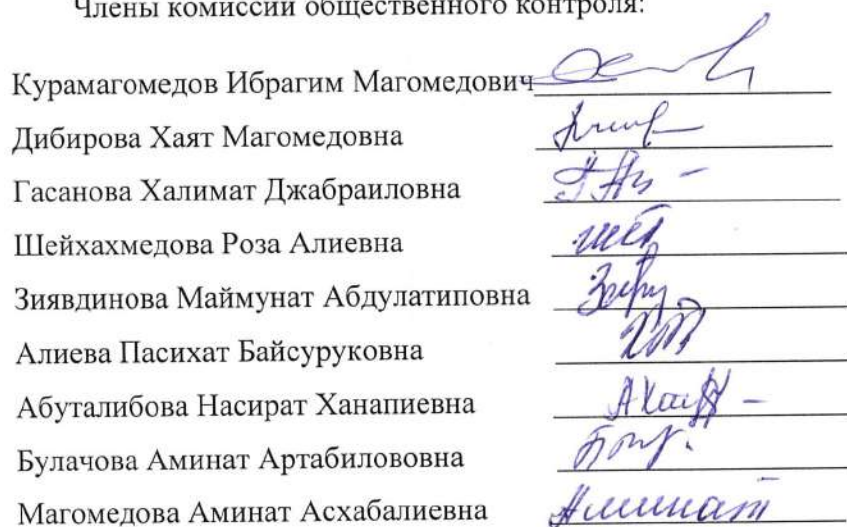 Члены комиссии общественного контроля:
Курамагомедов Ибрагим Магомедович
Дибирова Хаят Магомедовна
Гасанова Халимат Джабраиловна
Шейхахмедова Роза Алиевна
Зиявдинова Маймунат Абдулатиповна
Алиева Пасихат Байсуруковна
Абуталибова Насират Ханапиевна
Булачова Аминат Артабилововна
Магомедова Аминат Асхабалиевна Аминат